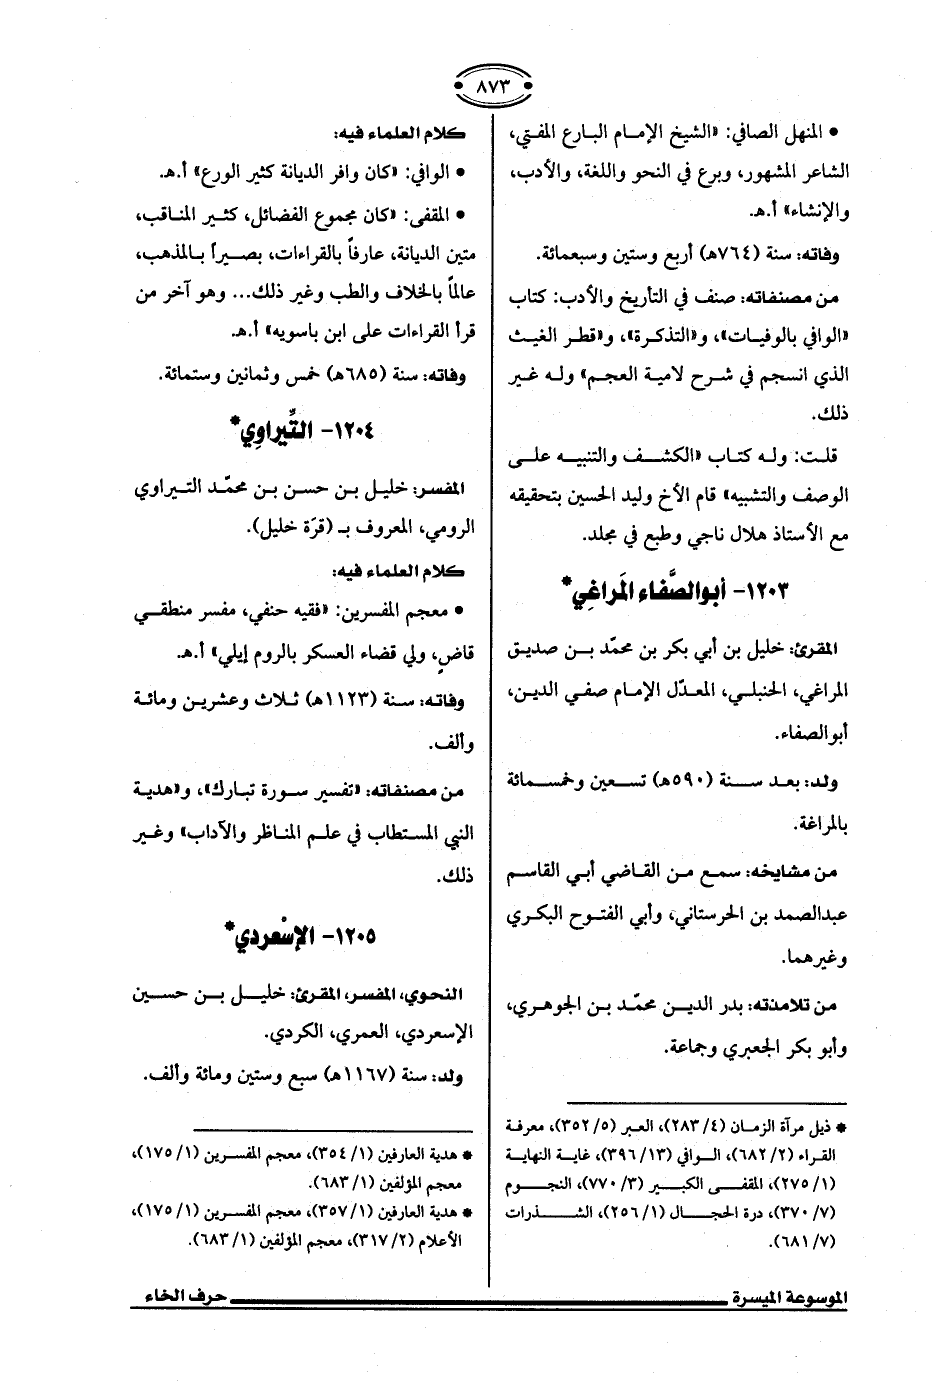 ٨٧٣
• المنهل الصافي: «الشيخ الإمام البارع المفتي،
الشاعر المشهور، وبرع في النحو واللغة، والأدب،
والإنشاء» أ.هـ.
وفاته: سنة (٧٦٤هـ) أربع وستين وسبعمائة.
من مصنفاته: صنف في التأريخ والأدب: كتاب
«الوافي بالوفيات»، و«التذكرة»، و«قطر الغيث
الذي انسجم في شرح لامية العجم» وله غير
ذلك.
قلت: وله كتاب «الكشف والتنبيه على
الوصف والتشبيه» قام الأخ وليد الحسين بتحقيقه
مع الأستاذ هلال ناجي وطبع في مجلد.
١٢٠٣- أبوالصَّفاء المَراغِي*
المقرئ: خليل بن أبي بكر بن محمّد بن صديق
المراغي، الحنبلي، المعدّل الإمام صفي الدين،
أبوالصفاء.
ولد: بعد سنة (٥٩٠هـ) تسعين وخمسمائة
بالمراغة.
من مشايخه: سمع من القاضي أبي القاسم
عبدالصمد بن الحرستاني، وأبي الفتوح البكري
وغيرهما.
من تلامذته: بدر الدين محمّد بن الجوهري،
وأبو بكر الجعبري وجماعة.
* ذيل مرآة الزمان (٤/ ٢٨٣)، العبر (٥/ ٣٥٢)، معرفة
القراء (٢/ ٦٨٢)، الوافي (١٣/ ٣٩٦)، غاية النهاية
(١/ ٢٧٥)، المقفى الكبير (٣/ ٧٧٠)، النجوم
(٧/ ٣٧٠)، درة الحجال (١/ ٢٥٦)، الشذرات
(٧/ ٦٨١).
كلام العلماء فيه:
• الوافي: «كان وافر الديانة كثير الورع» أ.هـ.
• المقفى: «كان مجموع الفضائل، كثير المناقب،
متين الديانة، عارفاً بالقراءات، بصيراً بالمذهب،
عالماً بالخلاف والطب وغير ذلك... وهو آخر من
قرأ القراءات على ابن باسويه» أ.هـ.
وفاته: سنة (٦٨٥هـ) خمس وثمانين وستمائة.
١٢٠٤- التِّيراوِي*
المفسر: خليل بن حسن بن محمّد التيراوي
الرومي، المعروف بـ (قرَة خليل).
كلام العلماء فيه:
• معجم المفسرين: «فقيه حنفي، مفسر منطقي
قاضٍ، ولي قضاء العسكر بالروم إيلي» أ.هـ.
وفاته: سنة (١١٢٣هـ) ثلاث وعشرين ومائة
وألف.
من مصنفاته: «تفسير سورة تبارك»، و«هدية
النبي المستطاب في علم المناظر والآداب» وغير
ذلك.
١٢٠٥- الإسْعردي*
النحوي، المفسر، المقرئ: خليل بن حسين
الإسعردي، العمري، الكردي.
ولد: سنة (١١٦٧هـ) سبع وستين ومائة وألف.
* هدية العارفين (١/ ٣٥٤)، معجم المفسرين (١/ ١٧٥)،
معجم المؤلفين (١/ ٦٨٣).
* هدية العارفين (١/ ٣٥٧)، معجم المفسرين (١/ ١٧٥)،
الأعلام (٢/ ٣١٧)، معجم المؤلفين (١/ ٦٨٣).
الموسوعة الميسرة
حرف الخاء